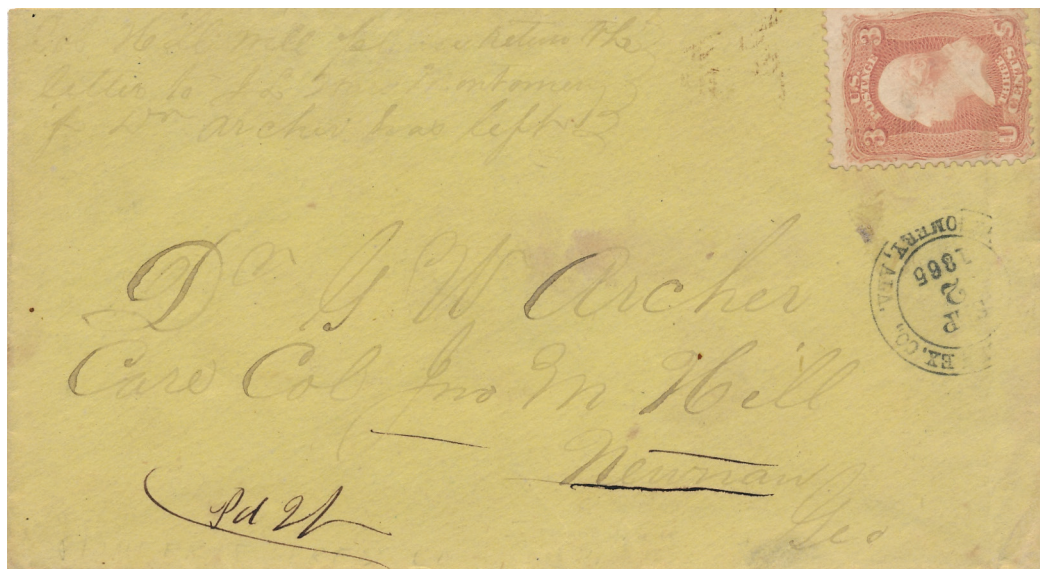 Col Hill will please return this
letter to J L Ives Montgomery
if Dr Archer has left
U.S. POSTAGE
3 3
THREE CENTS
EX. CO., OMERY, ALA.
2
1865
Dr G W Archer
Care Col Jno M Hill
Newnan
Geo
Pd 2/